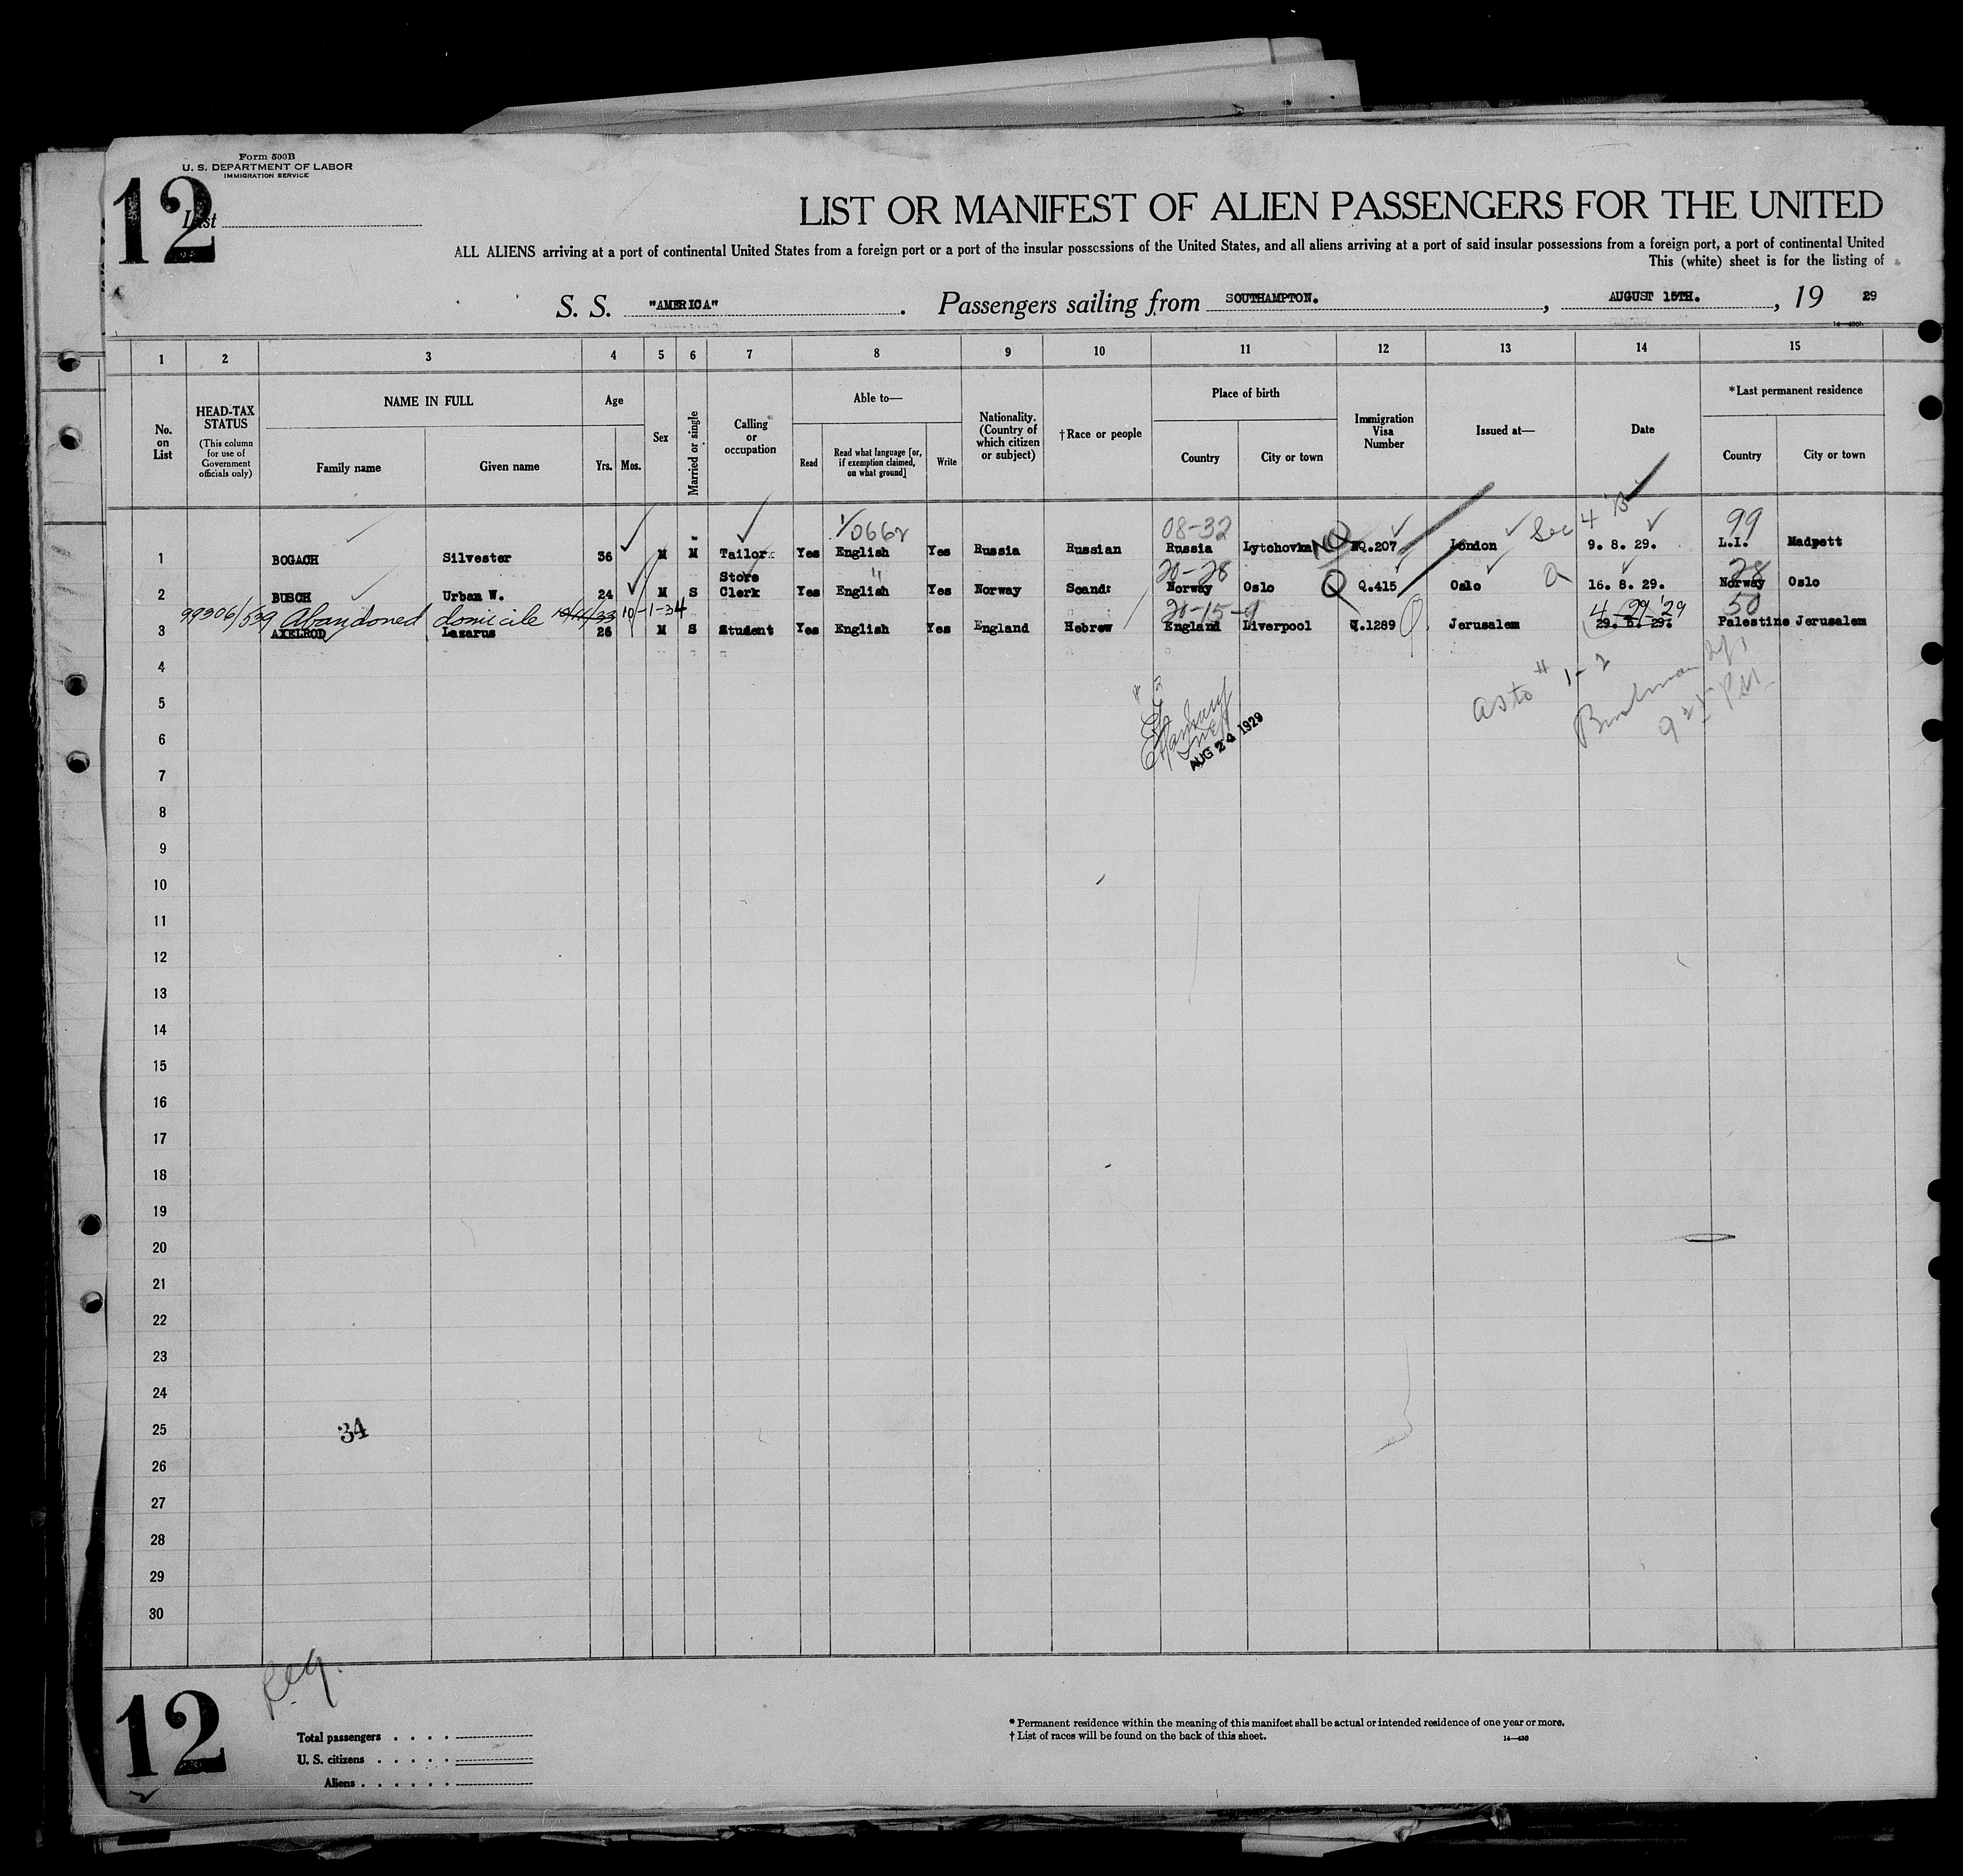 Form 500B
U. S. DEPARTMENT OF LABOR
IMMIGRATION SERVICE
12
List
LIST OR MANIFEST OF ALIEN PASSENGERS FOR THE UNITED
ALL ALIENS arriving at a port of continental United States from a foreign port or a port of the insular possessions of the United States, and all aliens arriving at a port of said insular possessions from a foreign port, a port of continental United
This (white) sheet is for the listing of
S. S. "AMERICA". Passengers sailing from SOUTHAMPTON., AUGUST 15TH., 19 29
1 2 3 4 5 6 7 8 9 10 11 12 13 14 15
No. on List
HEAD-TAX STATUS
(This column for use of Government officials only)
NAME IN FULL
Family name Given name
Age
Yrs. Mos.
Sex
Married or single
Calling or occupation
Able to—
Read
Read what language [or, if exemption claimed, on what ground]
Write
Nationality. (Country of which citizen or subject)
†Race or people
Place of birth
Country City or town
Immigration Visa Number
Issued at—
Date
*Last permanent residence
Country City or town
08-32 Sec 4 B 99
1 BOGACH Silvester 36 M M Tailor Yes English Yes Russia Russian Russia Lytchovka NQ NQ.207 London 9. 8. 29. L.I. Madpett
20-28 28
2 BUSCH Urban W. 24 M S Store Clerk Yes English Yes Norway Scand: Norway Oslo Q Q.415 Oslo 16. 8. 29. Norway Oslo
99306/539 Abandoned domicile 10-1-34 4/29/'29 50
3 AXELROD Lazarus 26 M S Student Yes English Yes England Hebrew England Liverpool Q.1289 Jerusalem 29. 5. 29. Palestine Jerusalem
4
as to # 1-2
5
9 25 PM
6
AUG 24 1929
7
8
9
10
11
12
13
14
15
16
17
18
19
20
21
22
23
24
25
34
26
27
28
29
30
12
Total passengers
U. S. citizens
Aliens
* Permanent residence within the meaning of this manifest shall be actual or intended residence of one year or more.
† List of races will be found on the back of this sheet.
14—430